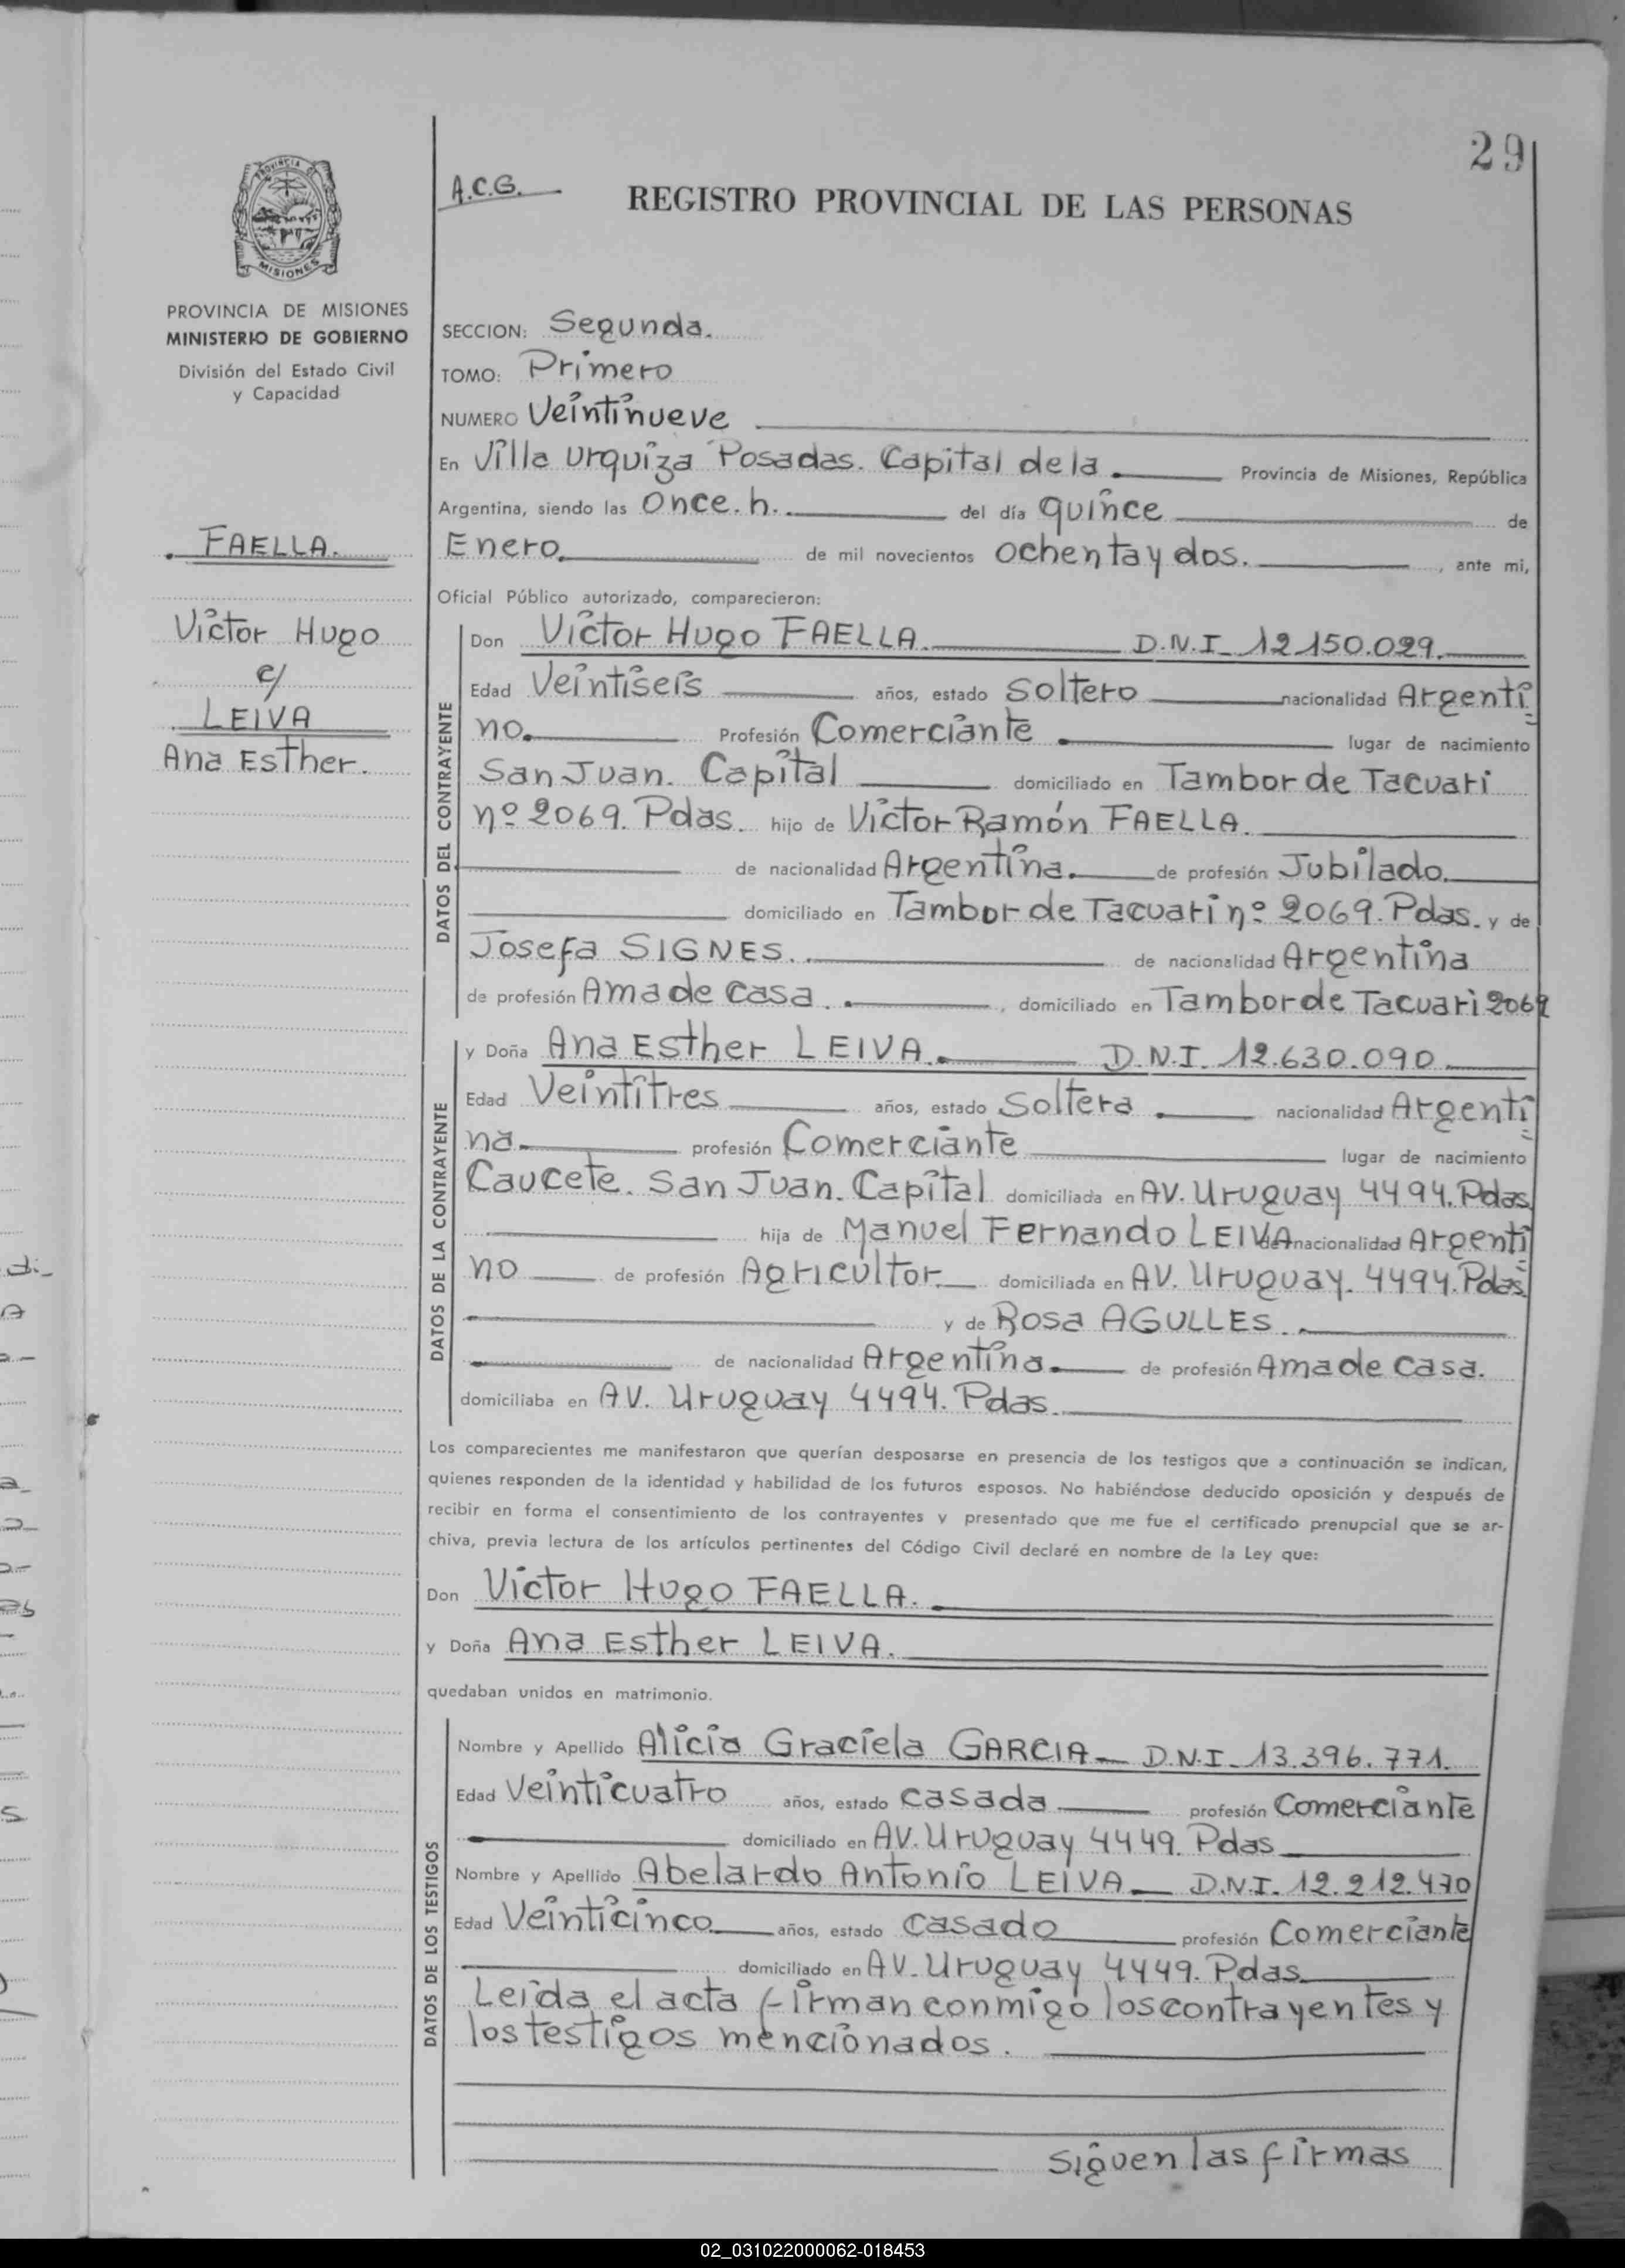 29
A.C.G.
REGISTRO PROVINCIAL DE LAS PERSONAS
PROVINCIA DE MISIONES
MINISTERIO DE GOBIERNO
División del Estado Civil
y Capacidad
FAELLA.
Victor Hugo
c/
LEIVA
Ana Esther.
SECCION: Segunda.
TOMO: Primero
NUMERO Veintinueve
En Villa Urquiza Posadas. Capital de la Provincia de Misiones, República
Argentina, siendo las Once.h. del día quince de
Enero. de mil novecientos ochenta y dos. , ante mi,
Oficial Público autorizado, comparecieron:
DATOS DEL CONTRAYENTE
Don Victor Hugo FAELLA. D.N.I_ 12.150.029.
Edad Veintiseis años, estado Soltero nacionalidad Argenti=
no. Profesión Comerciante lugar de nacimiento
San Juan. Capital domiciliado en Tambor de Tacuari
nº 2069. Pdas. hijo de Victor Ramón FAELLA.
de nacionalidad Argentina. de profesión Jubilado.
domiciliado en Tambor de Tacuari nº 2069. Pdas. y de
Josefa SIGNES. de nacionalidad Argentina
de profesión Ama de Casa. , domiciliado en Tambor de Tacuari 2069
DATOS DE LA CONTRAYENTE
y Doña Ana Esther LEIVA. D.N.I. 12.630.090
Edad Veintitres años, estado Soltera nacionalidad Argenti=
na. profesión Comerciante lugar de nacimiento
Caucete. San Juan. Capital domiciliada en AV. Uruguay 4494. Pdas.
hija de Manuel Fernando LEIVA de nacionalidad Argenti=
no de profesión Agricultor. domiciliada en AV. Uruguay. 4494. Pdas.
y de Rosa AGULLES.
de nacionalidad Argentina. de profesión Ama de Casa.
domiciliaba en AV. Uruguay 4494. Pdas.
Los comparecientes me manifestaron que querían desposarse en presencia de los testigos que a continuación se indican,
quienes responden de la identidad y habilidad de los futuros esposos. No habiéndose deducido oposición y después de
recibir en forma el consentimiento de los contrayentes y presentado que me fue el certificado prenupcial que se ar-
chiva, previa lectura de los artículos pertinentes del Código Civil declaré en nombre de la Ley que:
Don Victor Hugo FAELLA.
y Doña Ana Esther LEIVA.
quedaban unidos en matrimonio.
DATOS DE LOS TESTIGOS
Nombre y Apellido Alicia Graciela GARCIA_ D.N.I_ 13.396.771.
Edad Veinticuatro años, estado Casada profesión Comerciante
domiciliado en AV. Uruguay 4449. Pdas
Nombre y Apellido Abelardo Antonio LEIVA_ D.N.I. 12.212.470
Edad Veinticinco años, estado Casado profesión Comerciante
domiciliado en AV. Uruguay 4449. Pdas
Leida el acta firman conmigo los contrayentes y
los testigos mencionados.
Siguen las firmas
02_031022000062-018453